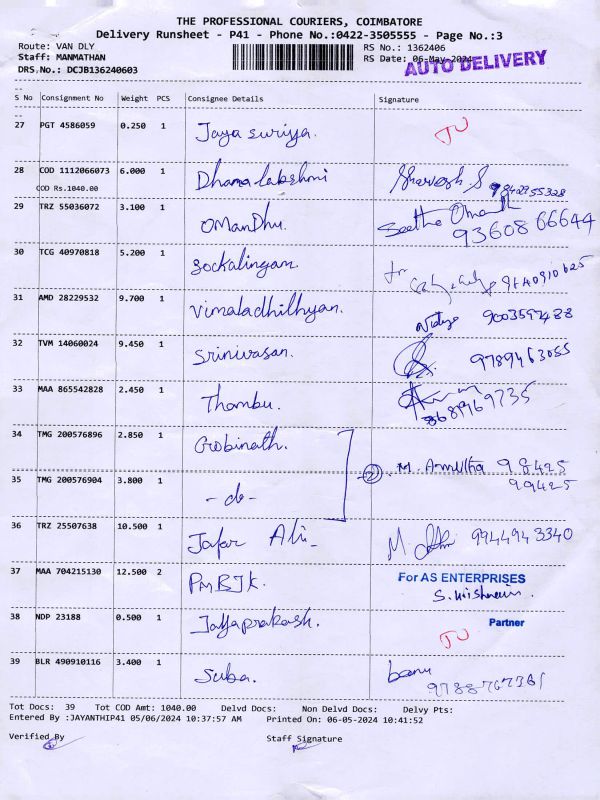 THE PROFESSIONAL COURIERS, COIMBATORE
Delivery Runsheet - P41 - Phone No.:0422-3505555 - Page No.:3
Route: VAN DLY RS No.: 1362406
Staff: MANMATHAN RS Date: 06-May-2024
DRS No.: DCJB136240603 AUTO DELIVERY
S No Consignment No Weight PCS Consignee Details Signature
27 PGT 4586059 0.250 1 Jaya suriya.
28 COD 1112066073 6.000 1 Dhanalakshmi
COD Rs.1040.00
29 TRZ 55036072 3.100 1 OManDhu. Seetha 93608 66644
30 TCG 40970818 5.200 1 Sockalingam.
31 AMD 28229532 9.700 1 Vimaladhilhyan.
32 TVM 14060024 9.450 1 Sriniwasan. 9789463055
33 MAA 865542828 2.450 1 Thambu.
34 TMG 200576896 2.850 1 Gobinath. M. Amutha 98425
99425
35 TMG 200576904 3.800 1 - do - 2
36 TRZ 25507638 10.500 1 Jafar Ali - M 994494 3340
37 MAA 704215130 12.500 2 PMBJK. For AS ENTERPRISES
38 NDP 23188 0.500 1 Jayaprakash. Partner
39 BLR 490910116 3.400 1 Suba. banu
Tot Docs: 39 Tot COD Amt: 1040.00 Delvd Docs: Non Delvd Docs: Delvy Pts:
Entered By :JAYANTHIP41 05/06/2024 10:37:57 AM Printed On: 06-05-2024 10:41:52
Verified By Staff Signature